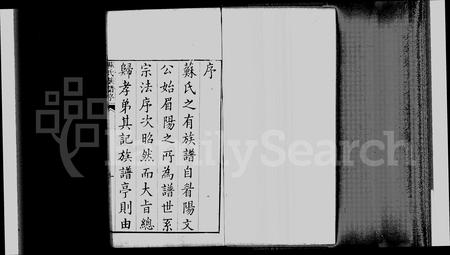 序
蘇氏之有族譜自眉陽文
公始眉陽之所為譜世系
宗法序次昭然而大旨總
歸孝弟其記族譜亭則由
FamilySearch